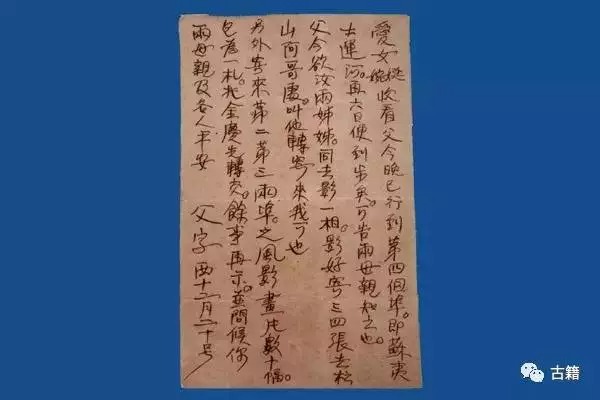 愛女娫婉收看父今晚已行到第四個埠。即蘇夷
士運河。再六日便到步矣。可告兩母親知之也。
父今欲汝兩姊妹。同去影一相。影好寄三四張去松
山阿哥處。叫他轉寄來我可也
另外寄來第二第三兩埠。之風影畫片數十幅。
包為一札。托金慶先轉交。餘事再示。並問候你
兩母親及各人平安 父字 西十二月二十号
古籍